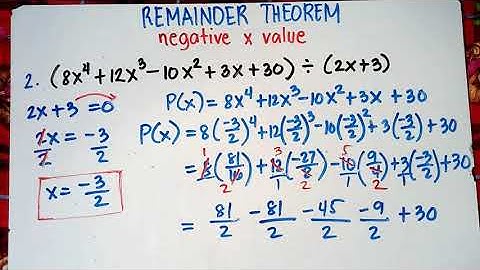 REMAINDER THEOREM
negative x value
2. (8x⁴+12x³-10x²+3x+30) ÷ (2x+3)
2x+3=0
2x = -3
2 2
x = -3/2
P(x) = 8x⁴+12x³-10x²+3x+30
P(x) = 8(-3/2)⁴+12(-3/2)³-10(-3/2)²+3(-3/2)+30
= 8(81/16)+12/1(-27/8)-10/1(9/4)+3/1(-3/2)+30
= 81/2 -81/2 -45/2 -9/2 +30